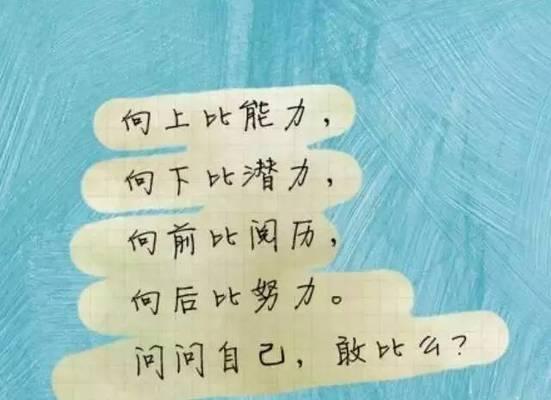 向上比能力，
向下比潜力，
向前比阅历，
向后比努力。
问问自己，敢比么？